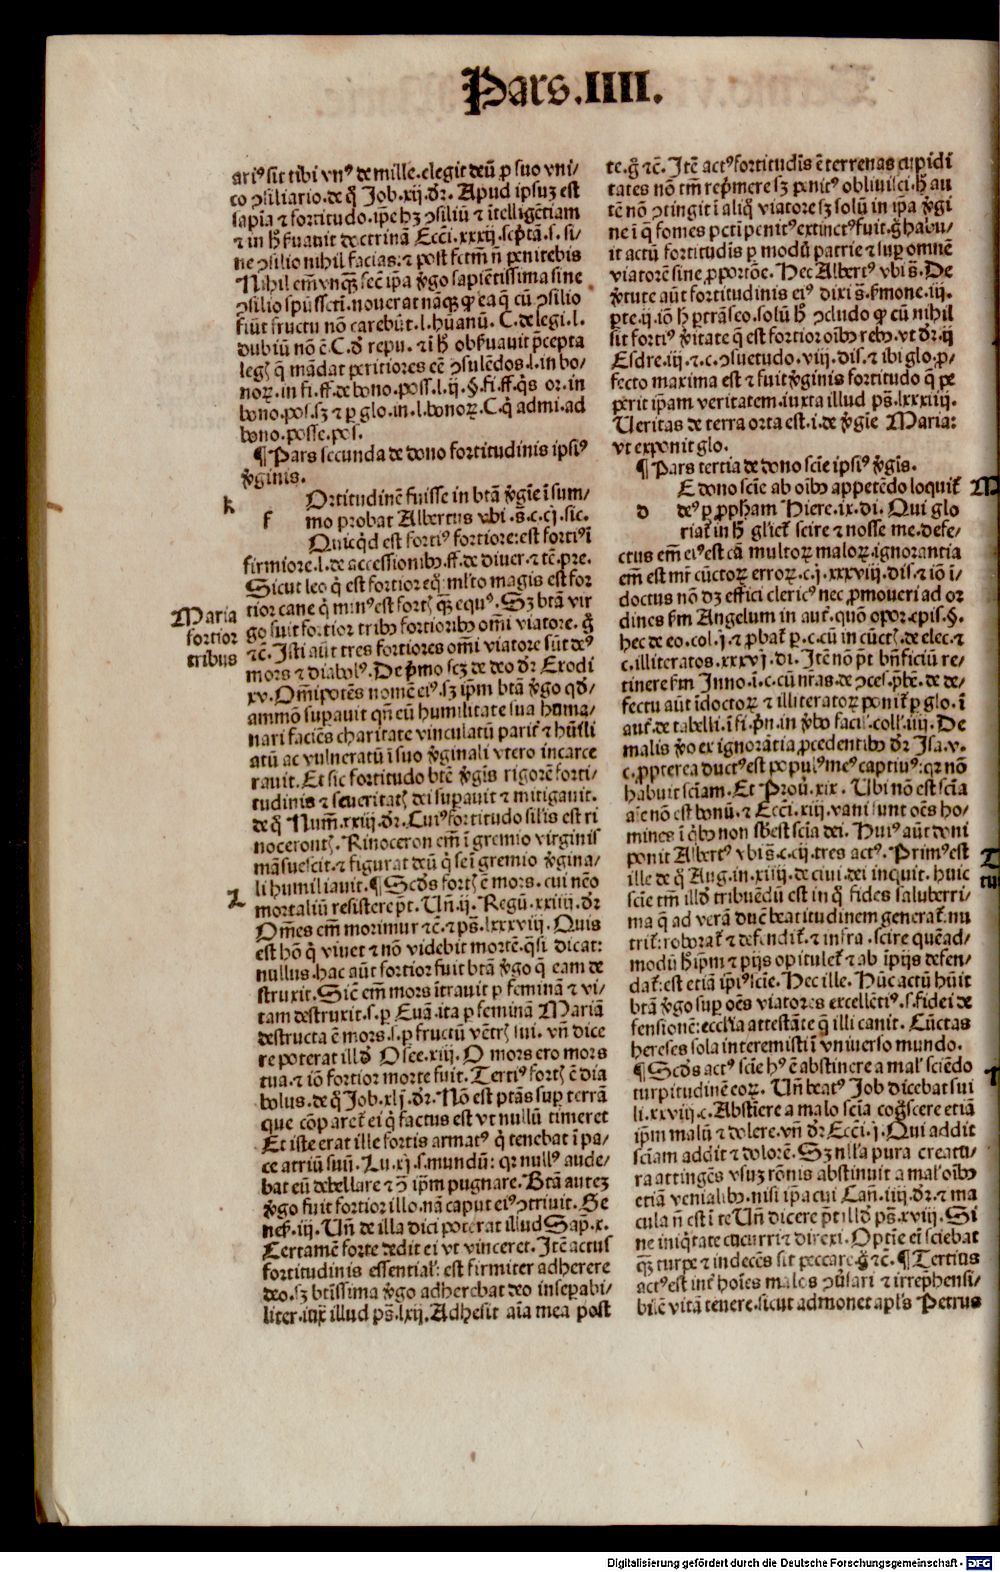 Pars.IIII.
ariꝰ sit tibi vnꝰ de mille.elegit deū ꝑ suo vni/
co ꝯsiliario.de q̄ Job.xij.dr̄. Apud ipsuz est
sapīa ⁊ fortitudo.ip̄e hꝫ ꝯsiliū ⁊ ītelligētiam
⁊ in hͦ ẜuauit doctrinā Ecc̄i.xxxij.sc̄ptā.s.si/
ne ꝯsilio nihil facias:⁊ post fctm̄ n̄ penitebis
Nihil em̄ vnqꝫ̄ sec̄ ip̄a ꝟgo sapiētissima sine
ꝯsilio spūssct̄i.nouerat nāqꝫ ꝙ ea q̄ cū ꝯsilio
fiūt fructu nō carebūt.l.hūanū. C.de legi.l.
dubiū nō ē.C.đ repu.⁊ ī hͦ obẜuauit p̄cepta
legꝭ q̄ mādat peritiores eē ꝯsulēdos.l.in bo/
noꝝ.in fi.ff.de bono.poss.l.ij.§.fi.ff.q̄s or.in
bono.pos.sꝫ ⁊ ꝑ glo.in.l.bonoꝝ.C.q̄ admi.ad
bono.posse.pos.
¶ Pars secunda de dono fortitudinis ipsiꝰ
ꝟginis.
k
f
Ortitudinē fuisse in btā ꝟgīe ī sum/
mo probat Albertus vbi.s̄.c.cj.sic.
Quicqͥd est fortiꝰ fortiore:est fortiꝰ ī
firmiore.l.de accessionibꝰ.ff.de diuer.⁊ tē.pre.
Sicut leo q̄ est fortior eq̄:ml̄to magis est for
tior cane q̄ minꝰ est fortꝭ qꝫ̄ equꝰ. Sꝫ btā vir
Maria
fortior
tribus
go fuit fortior tribꝰ fortioribꝰ om̄i viatore.ḡ
⁊c. Isti aūt tres fortiores om̄i viatore sūt deꝰ
mors ⁊ diabolꝰ. De p̄mo scꝫ de deo dr̄ Exodi
xv. Om̄ipotēs nomē eiꝰ.sꝫ ip̄m btā ꝟgo qđ/
ammō suꝑauit qn̄ eū humilitate sua huma/
nari faciēs charitate vinculatū parit̄ ⁊ hūīli
atū ac vulneratū ī suo ꝟginali vtero incarce
rauit. Et sic fortitudo btē ꝟgīs rigorē forti/
tudinis ⁊ seueritatꝭ dei suꝑauit ⁊ mitigauit.
de q̄ Num̄.xxiij.dr̄. Cuiꝰ fortitudo sil̄is est ri
nocerontꝭ. Rinoceron em̄ ī gremio virginis
māsuescit.⁊ figurat deū q̄ se ī gremio ꝟgina/
li humiliauit.¶ Scđs fortꝭ ē mors. cui nēo
l
mortaliū resistere p̄t. Un̄.ij. Regū.xxiiij.dr̄
Om̄es em̄ morimur ⁊c.⁊ ps̄.lxxxviij. Quis
est hō q̄ viuet ⁊ nō videbit mortē.q̄si dicat:
nullus.hac aūt fortior fuit btā ꝟgo q̄ eam de
struxit. Sic̄ em̄ mors ītrauit ꝑ feminā ⁊ vi/
tam destruxit.s.ꝑ Euā.ita ꝑ feminā Mariā
destructa ē mors.s.ꝑ fructū vētrꝭ sui. vn̄ dice
re poterat illđ Osee.xiij. O mors ero mors
tua.⁊ iō fortior morte fuit. Tertiꝰ fortꝭ ē dia
bolus.de q̄ Job.xlj.dr̄. Nō est ptās suꝑ terrā
que cōparet̄ ei q̄ factus est vt nullū timeret
Et iste erat ille fortis armatꝰ q̄ tenebat ī pa/
ce atriū suū. Lu.xj.s.mundū: qꝛ nullꝰ aude/
bat eū debellare ⁊ ꝯ̄ ip̄m pugnare. Btā autez
ꝟgo fuit fortior illo.nā caput eiꝰ ꝯtriuit. Ge
nes̄.iij. Un̄ de illa dici poterat illud Sap̄.x.
Certamē forte dedit ei vt vinceret. Itē actus
fortitudinis essential̄: est firmiter adherere
deo.sꝫ btīssima ꝟgo adherebat deo inseꝑabi/
liter.iux̄ illud ps̄.lxij. Adhesit aīa mea post
te.ḡ ⁊c. Itē actꝰ fortitudīs ē terrenas cupidi
tates nō tm̄ rep̄mere sꝫ penitꝰ obliuisci.hͦ au
tē nō ꝯtingit ī aliq̄ viatore sꝫ solū in ip̄a ꝟgi
ne ī q̄ fomes pct̄i penitꝰ extinctꝰ fuit.ḡ habu/
it actū fortitudīs ꝑ modū patrie ⁊ suꝑ omnē
viatorē sine ꝓportōe. Hec Albertꝰ vbi s̄. De
ꝟtute aūt fortitudinis eiꝰ dixi s̄.ẜmone.iij.
ꝑte.ij.iō hͦ ꝑtrāseo.solū hͦ ꝯcludo ꝙ cū nihil
sit fortiꝰ ꝟitate q̄ est fortior oībꝰ rebꝰ.vt dr̄.ij
Esdre.iij.⁊ c.ꝯsuetudo.viij.dis.⁊ ibi glo.ꝓ/
fecto maxima est ⁊ fuit ꝟginis fortitudo q̄ pe
perit ip̄am veritatem.iuxta illud ps̄.lxxxiiij.
Ueritas de terra orta est.i.de ꝟgīe Maria:
vt exponit glo.
¶ Pars tertia de dono scīe ipsiꝰ ꝟgīs.
d
E dono scīe ab oībꝰ appetēdo loquit̄
deꝰ ꝑ ꝓpham Hiere.ix.di. Qui glo
riat̄ in hͦ gliet̄ scire ⁊ nosse me.defe/
ctus em̄ eiꝰ est cā multoꝝ maloꝝ.ignorantia
em̄ est mr̄ cūctoꝝ erroꝝ.c.j.xxxviij.dis.⁊ iō ī/
doctus nō dꝫ effici clericꝰ nec ꝓmoueri ad or
dines ẜm Angelum in aut̄.quō opor.epis.§.
hec de eo.col.j.⁊ ꝓbat̄ ꝑ.c.cū in cūctꝭ.de elec.⁊
c.illiteratos.xxxvj.di. Itē nō p̄t bn̄ficiū re/
tinere ẜm Inno.ī.c.cū nr̄as.de ꝯces.p̄bē.de de/
fectu aūt īdoctoꝝ ⁊ illiteratoꝝ ponit̄ ꝑ glo.ī
aut̄.de tabelli.ī fi.ꝑn̄.in ꝟbo facil̄.coll̄.iiij. De
malis ꝟo ex ignorātia ꝓcedentibꝰ dr̄ Isa.v.
c.ꝓpterea ductꝰ est populꝰ meꝰ captiuꝰ:qꝛ nō
habuit sciam. Et Prou̇.xix. Ubi nō est scīa
aīe nō est bonū.⁊ Ecc̄i.xiij.vani sunt oēs ho/
mines ī q̄bꝰ non sb̄est scīa dei. Huiꝰ aūt doni
ponit Albertꝰ vbi s̄.c.cij.tres actꝰ. Primꝰ est
ille de q̄ Aug.in.xiiij.de ciui.dei inquit. Huic
scīe tm̄ illđ tribuēdū est in q̄ fides saluberri/
ma q̄ ad verā duc̄ beatitudinem generat̄:nu
trit̄:roborat̄ ⁊ defendit̄.⁊ infra.scire quēad/
modū hͦ ip̄m ⁊ pijs opitulet̄ ⁊ ab īpijs defen/
dat̄:est etiā ip̄iꝰ scīe. Hec ille. Hūc actū hūit
btā ꝟgo suꝑ oēs viatores excellētiꝰ.s.fidei de
fensionē:eccl̄ia attestāte q̄ illi canit. Cūctas
hereses sola interemisti ī vniuerso mundo.
¶ Scđs actꝰ scīe hꝰ ē abstinere a mal̄ sciēdo
turpitudinē eoꝝ. Un̄ beatꝰ Job dicebat sui
li.xxviij.c. Abstīere a malo scīa cogͦscere etiā
ip̄m malū ⁊ dolere.vn̄ dr̄ Ecc̄i.j. Qui addit
sciam addit ⁊ dolorē. Sꝫ nll̄a pura creatu/
ra attingēs vsuz rōnis abstinuit a mal̄ oībꝰ
etiā venialibꝰ.nisi ip̄a cui Can̄.iiij.dr̄.⁊ ma
cula n̄ est ī te Un̄ dicere p̄t illđ ps̄.xviij. Si
ne iniq̄tate cucurri ⁊ direxi. Optīe ei̇ sciebat
qꝫ̄ turpe ⁊ indecēs sit peccare.ḡ ⁊c. ¶ Tertius
actꝰ est int̄ hoīes malos ꝯuẜari ⁊ irrep̄hensi/
bilē vitā tenere.sicut admonet apl̄s Petrus